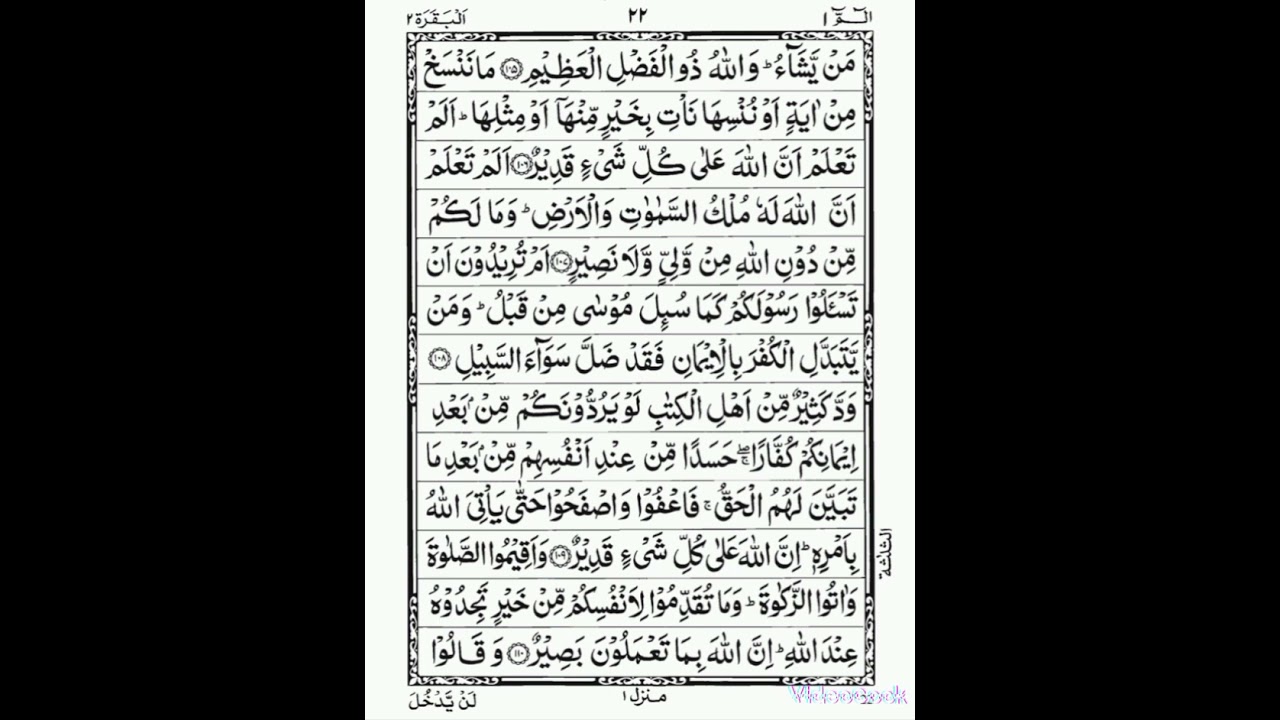 الٓمّٓ ١
٢٢
اَلْبَقَرَة ٢
مَنْ يَّشَآءُ ؕ وَاللّٰهُ ذُو الْفَضْلِ الْعَظِيْمِ ۝١٠٥ مَا نَنْسَخْ
مِنْ اٰيَةٍ اَوْ نُنْسِهَا نَاْتِ بِخَيْرٍ مِّنْهَاۤ اَوْ مِثْلِهَا ؕ اَلَمْ
تَعْلَمْ اَنَّ اللّٰهَ عَلٰى كُلِّ شَیْءٍ قَدِيْرٌ ۝١٠٦ اَلَمْ تَعْلَمْ
اَنَّ اللّٰهَ لَهٗ مُلْكُ السَّمٰوٰتِ وَالْاَرْضِ ؕ وَمَا لَكُمْ
مِّنْ دُوْنِ اللّٰهِ مِنْ وَّلِیٍّ وَّلَا نَصِيْرٍ ۝١٠٧ اَمْ تُرِيْدُوْنَ اَنْ
تَسْـَٔلُوْا رَسُوْلَكُمْ كَمَا سُئِلَ مُوْسٰى مِنْ قَبْلُ ؕ وَمَنْ
يَّتَبَدَّلِ الْكُفْرَ بِالْاِيْمَانِ فَقَدْ ضَلَّ سَوَآءَ السَّبِيْلِ ۝١٠٨
وَدَّ كَثِيْرٌ مِّنْ اَهْلِ الْكِتٰبِ لَوْ يَرُدُّوْنَكُمْ مِّنْۢ بَعْدِ
اِيْمَانِكُمْ كُفَّارًا ۖۚ حَسَدًا مِّنْ عِنْدِ اَنْفُسِهِمْ مِّنْۢ بَعْدِ مَا
تَبَيَّنَ لَهُمُ الْحَقُّ ۚ فَاعْفُوْا وَاصْفَحُوْا حَتّٰى يَاْتِیَ اللّٰهُ
بِاَمْرِهٖ ؕ اِنَّ اللّٰهَ عَلٰى كُلِّ شَیْءٍ قَدِيْرٌ ۝١٠٩ وَاَقِيْمُوا الصَّلٰوةَ
وَاٰتُوا الزَّكٰوةَ ؕ وَمَا تُقَدِّمُوْا لِاَنْفُسِكُمْ مِّنْ خَيْرٍ تَجِدُوْهُ
عِنْدَ اللّٰهِ ؕ اِنَّ اللّٰهَ بِمَا تَعْمَلُوْنَ بَصِيْرٌ ۝١١٠ وَقَالُوْا
الثلثة
منزل ١
لَنْ يَّدْخُلَ
22